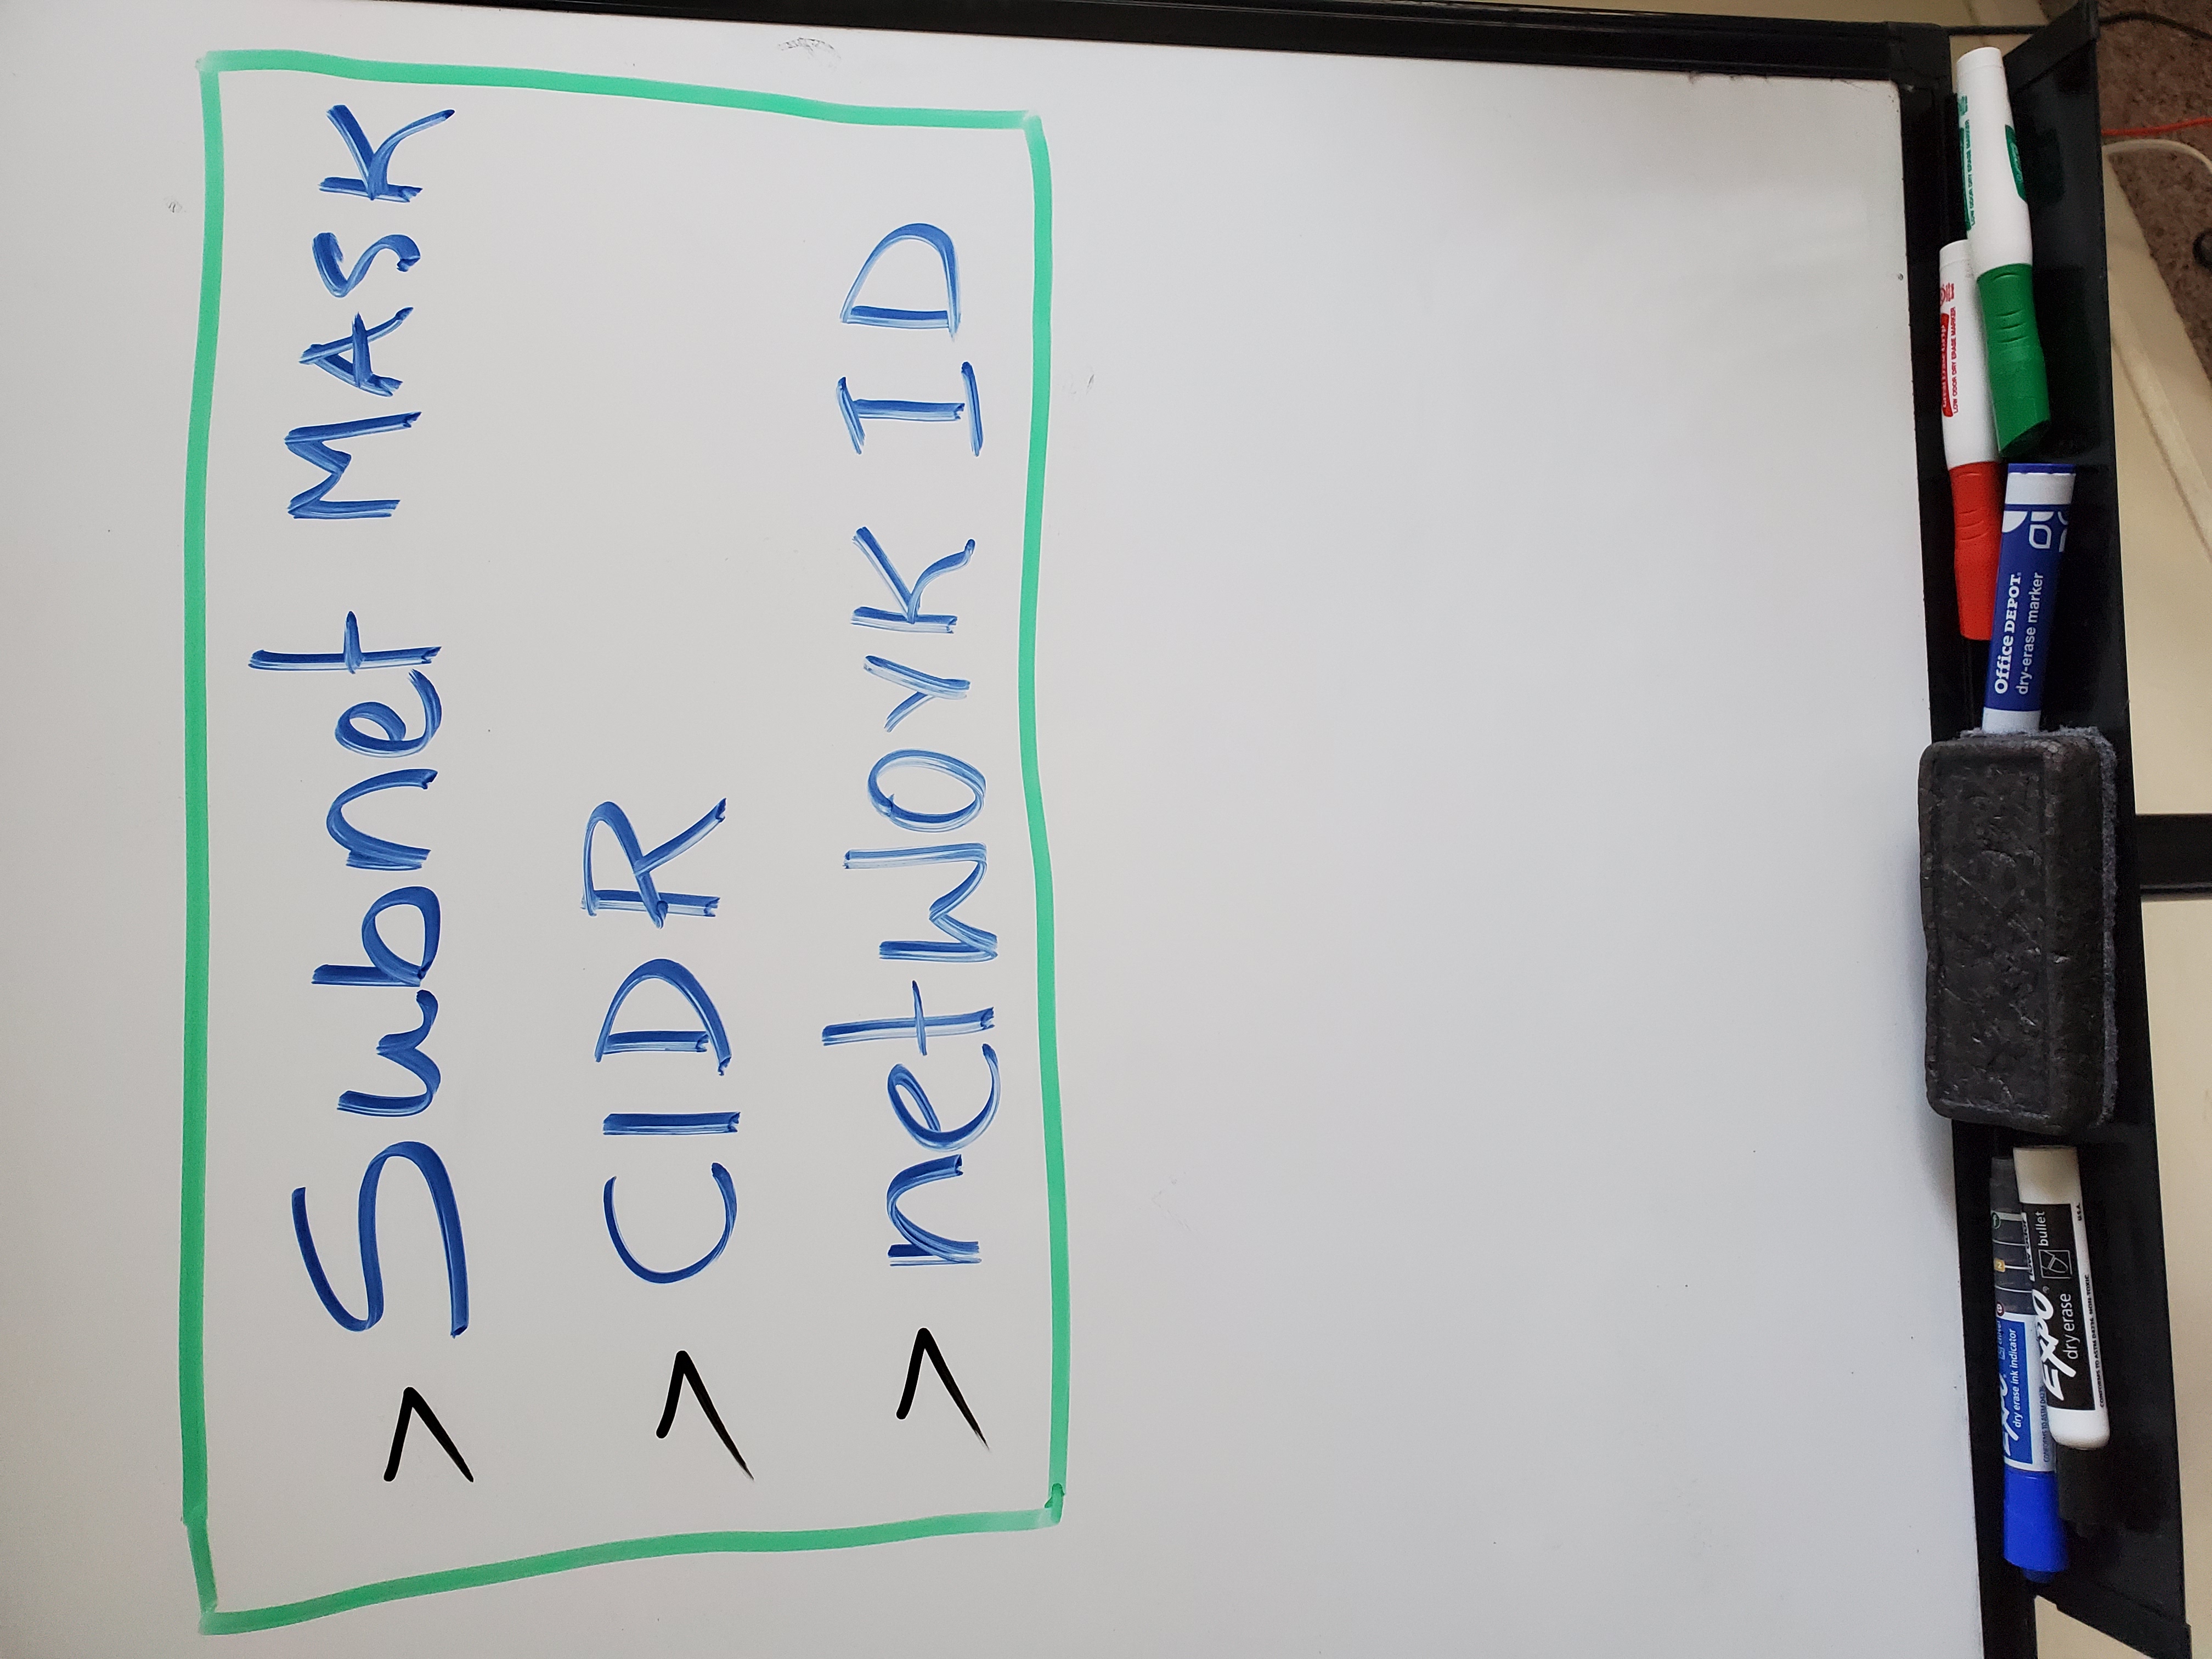 > Subnet MASK
> CIDR
> netWORK ID
EXPO
dry erase ink indicator
CONFORMS TO ASTM D4236
EXPO
dry erase
bullet
CONFORMS TO ASTM D4236, NON-TOXIC
U.S.A.
Office DEPOT
dry-erase marker
Great Erase Grip
LOW ODOR DRY ERASE MARKER
LOW ODOR DRY ERASE MARKER